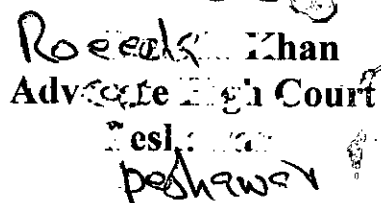 Khan
Advocate High Court
Peshawar
peshawar